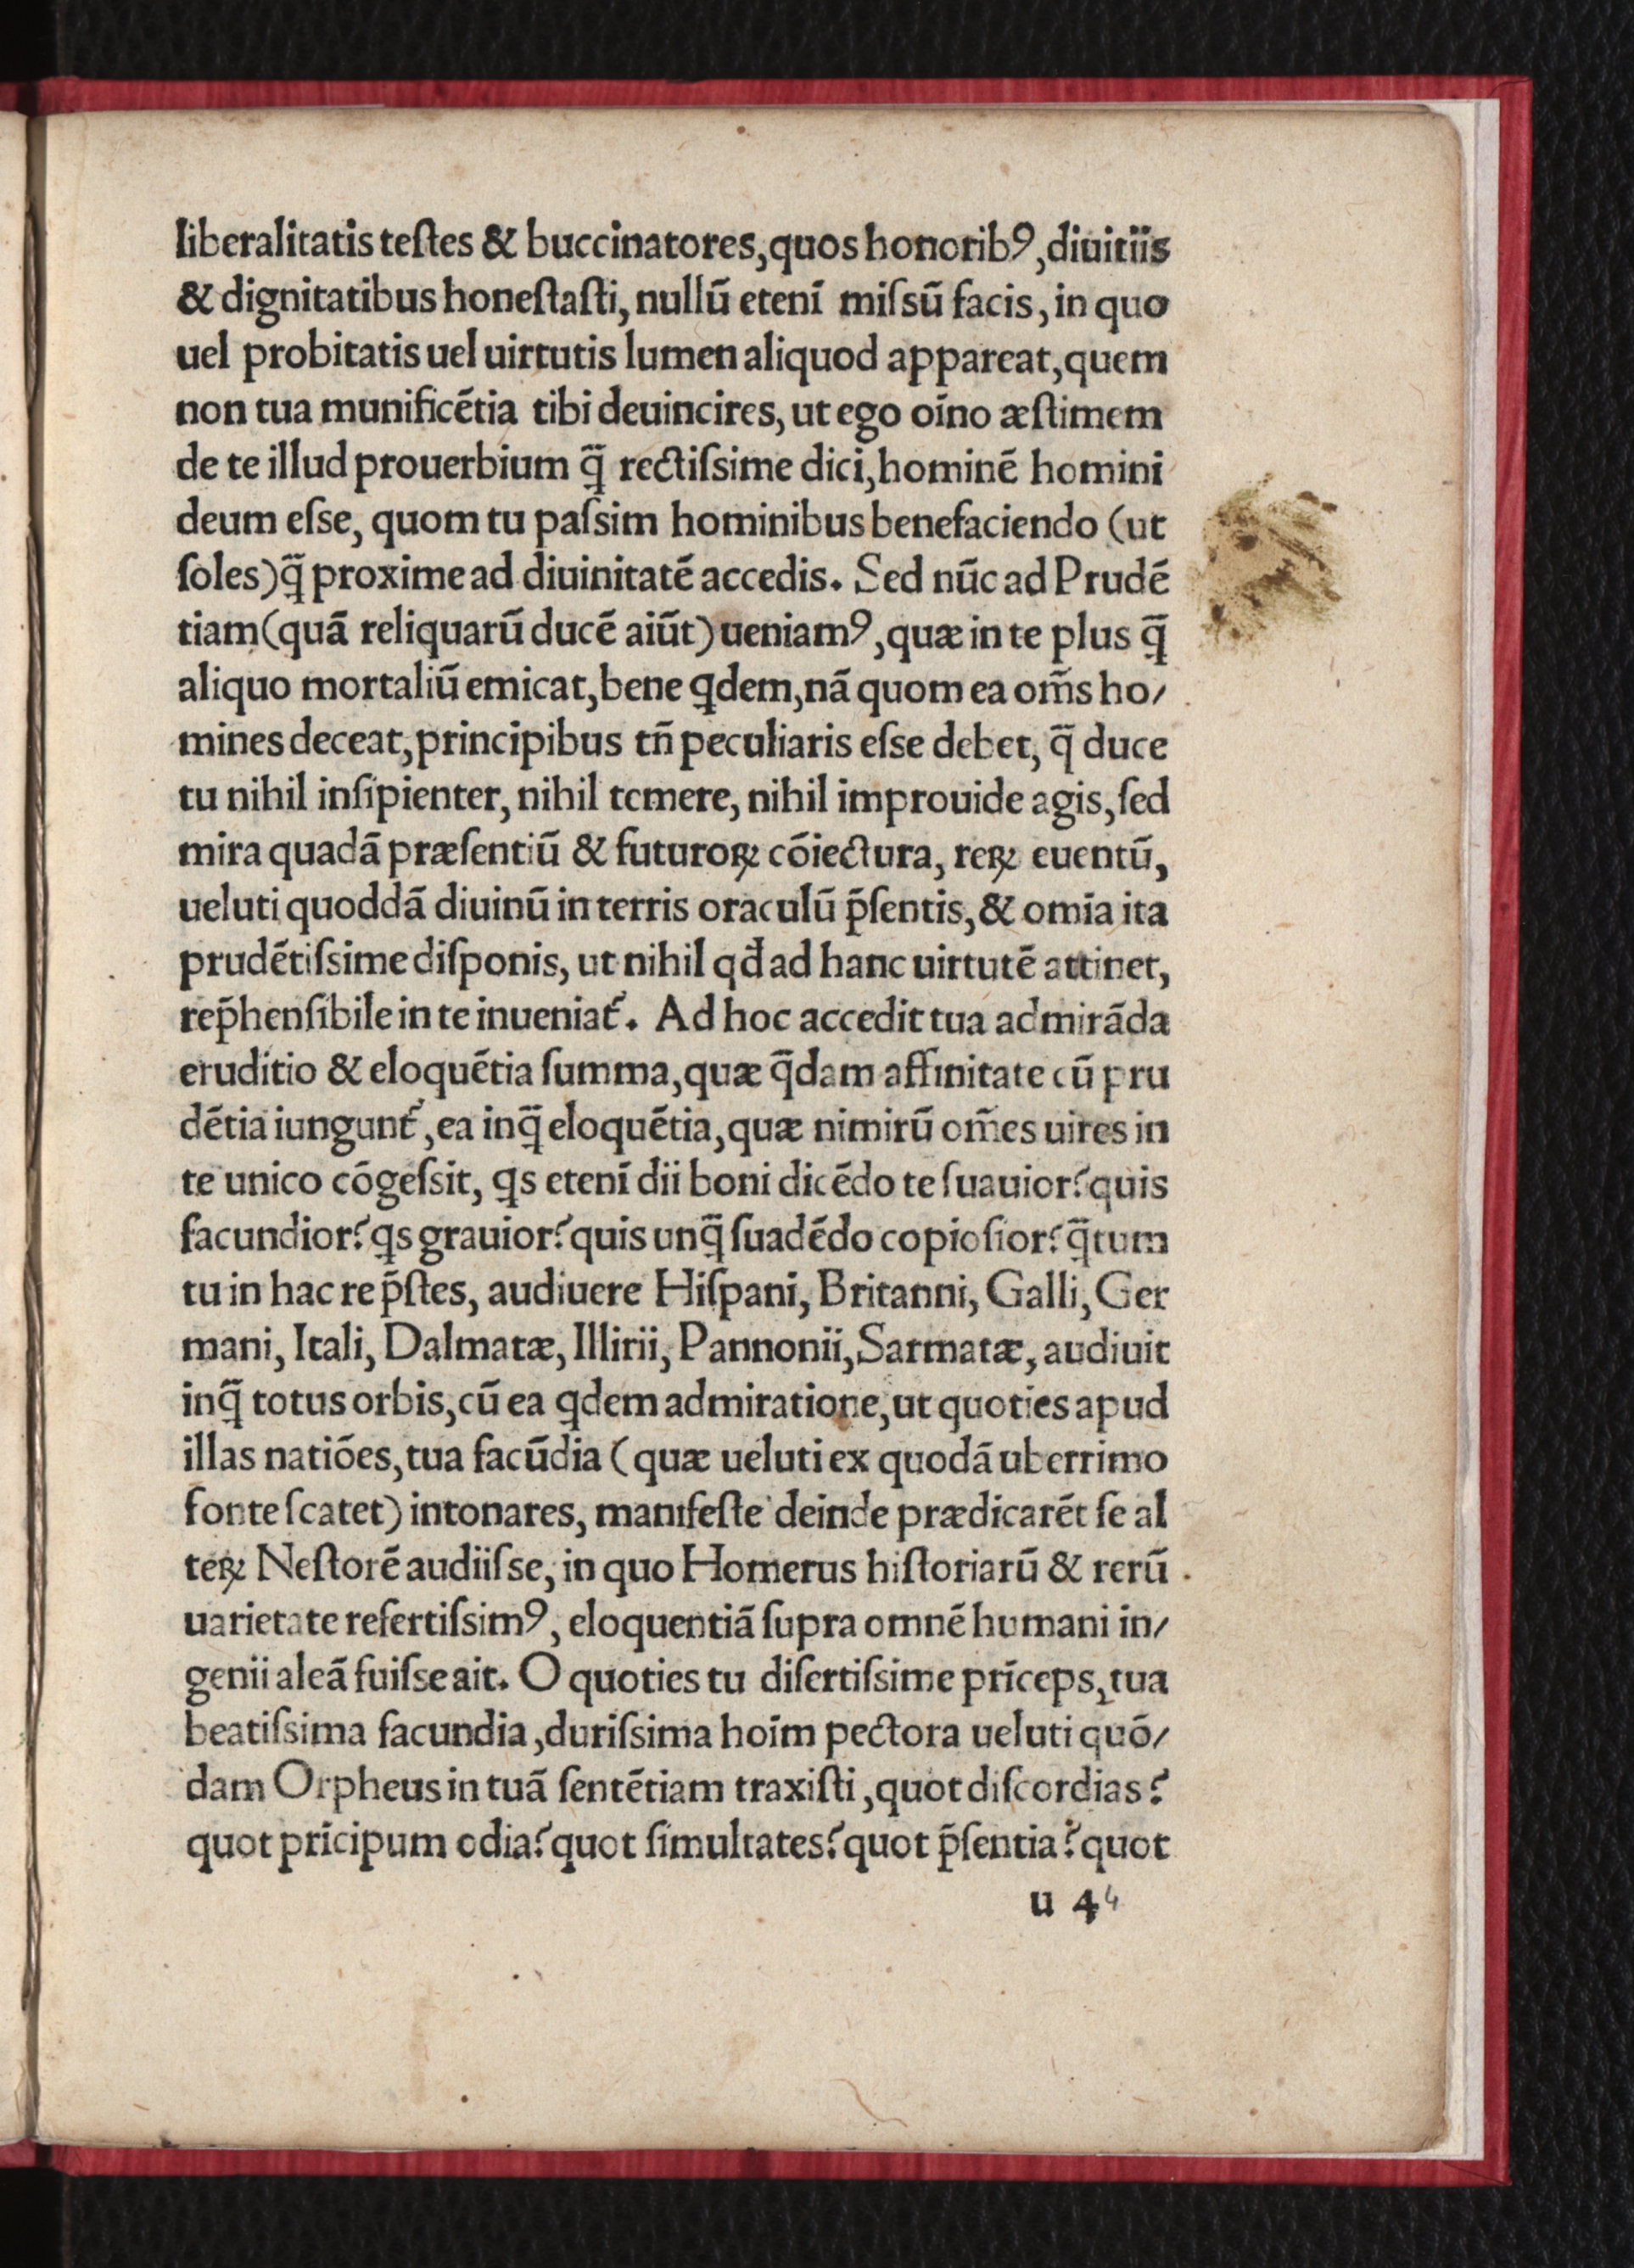 liberalitatis teſtes & buccinatores,quos honoribꝰ,diuitiis
& dignitatibus honeſtaſti, nullū etenī miſsū facis, in quo
uel probitatis uel uirtutis lumen aliquod appareat,quem
non tua munificētia tibi deuincires, ut ego oīno æſtimem
de te illud prouerbium q̄ rectiſsime dici,hominē homini
deum eſse, quom tu paſsim hominibus benefaciendo (ut
ſoles)q̄ proxime ad diuinitatē accedis. Sed nūc ad Prudē
tiam(quā reliquarū ducē aiūt)ueniamꝰ,quæ in te plus q̄
aliquo mortaliū emicat,bene ꝗdem,nā quom ea om̄s ho/
mines deceat,principibus tn̄ peculiaris eſse debet, q̄ duce
tu nihil inſipienter, nihil temere, nihil improuide agis,ſed
mira quadā præſentiū & futuroꝝ cōiectura, reꝝ euentū,
ueluti quoddā diuinū in terris oraculū p̄ſentis,& omīa ita
prudētiſsime diſponis, ut nihil qđ ad hanc uirtutē attinet,
rep̄henſibile in te inueniat᷑. Ad hoc accedit tua admirāda
eruditio & eloquētia ſumma,quæ q̄dam affinitate cū pru
dētia iungunt᷑,ea inq̄ eloquētia,quæ nimirū om̄es uires in
te unico cōgeſsit, ꝗs etenī dii boni dicēdo te ſuauior?quis
facundior?ꝗs grauior?quis unq̄ ſuadēdo copioſior?q̄tum
tu in hac re p̄ſtes, audiuere Hiſpani, Britanni, Galli, Ger
mani, Itali, Dalmatæ, Illirii, Pannonii,Sarmatæ, audiuit
inq̄ totus orbis,cū ea ꝗdem admiratione,ut quoties apud
illas natiōes,tua facūdia (quæ ueluti ex quodā uberrimo
fonte ſcatet) intonares, manifeſte deinde prædicarēt ſe al
teꝝ Neſtorē audiiſse, in quo Homerus hiſtoriarū & rerū
uarietate refertiſsimꝰ, eloquentiā ſupra omnē humani in/
genii aleā fuiſse ait. O quoties tu diſertiſsime prīceps, tua
beatiſsima facundia,duriſsima hoīm pectora ueluti quō/
dam Orpheus in tuā ſentētiam traxiſti,quot diſcordias?
quot prīcipum odia?quot ſimultates?quot p̄ſentia?quot
u 4 4